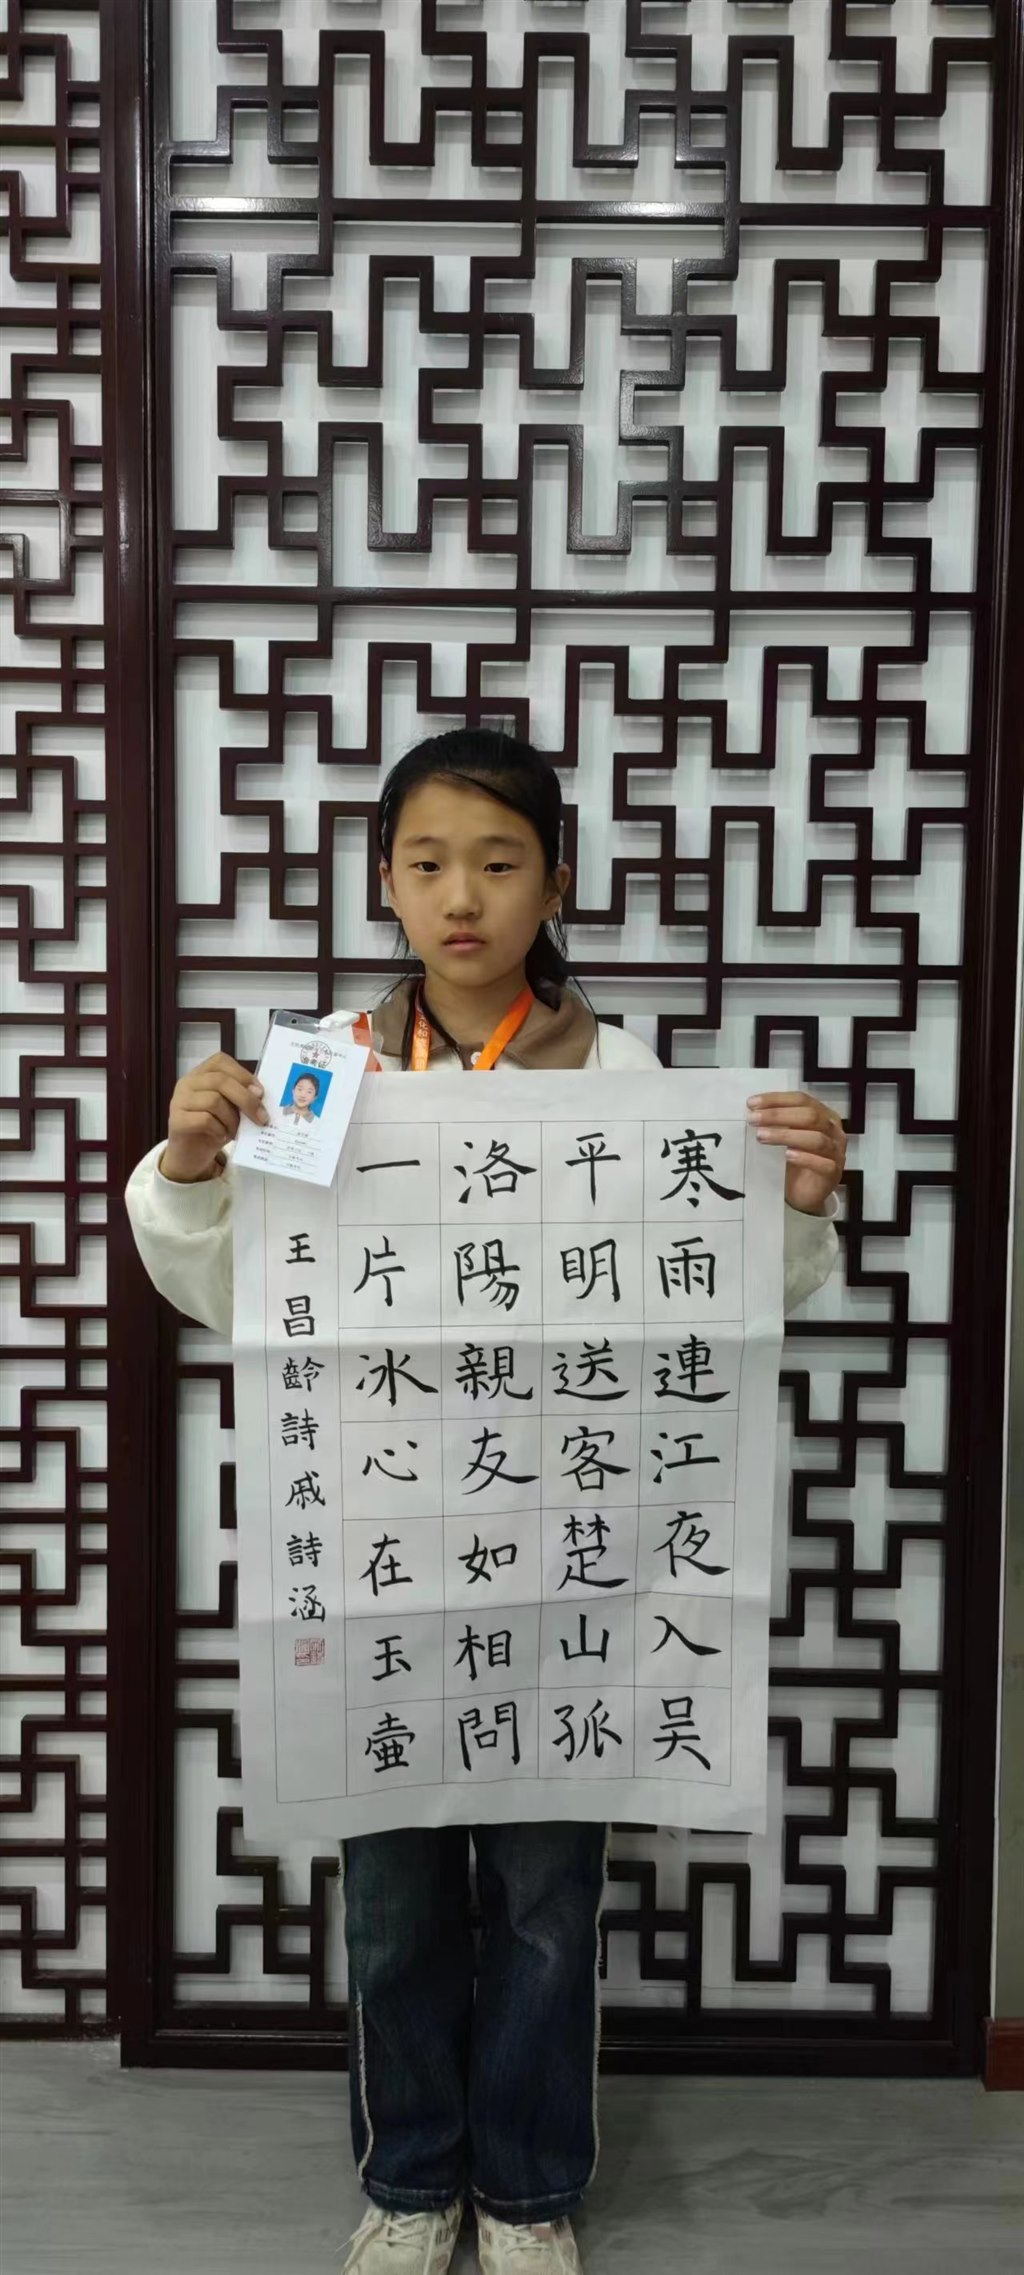 寒雨連江夜入吴
平明送客楚山孤
洛陽親友如相問
一片冰心在玉壺
王昌齡詩戚詩涵
准考证